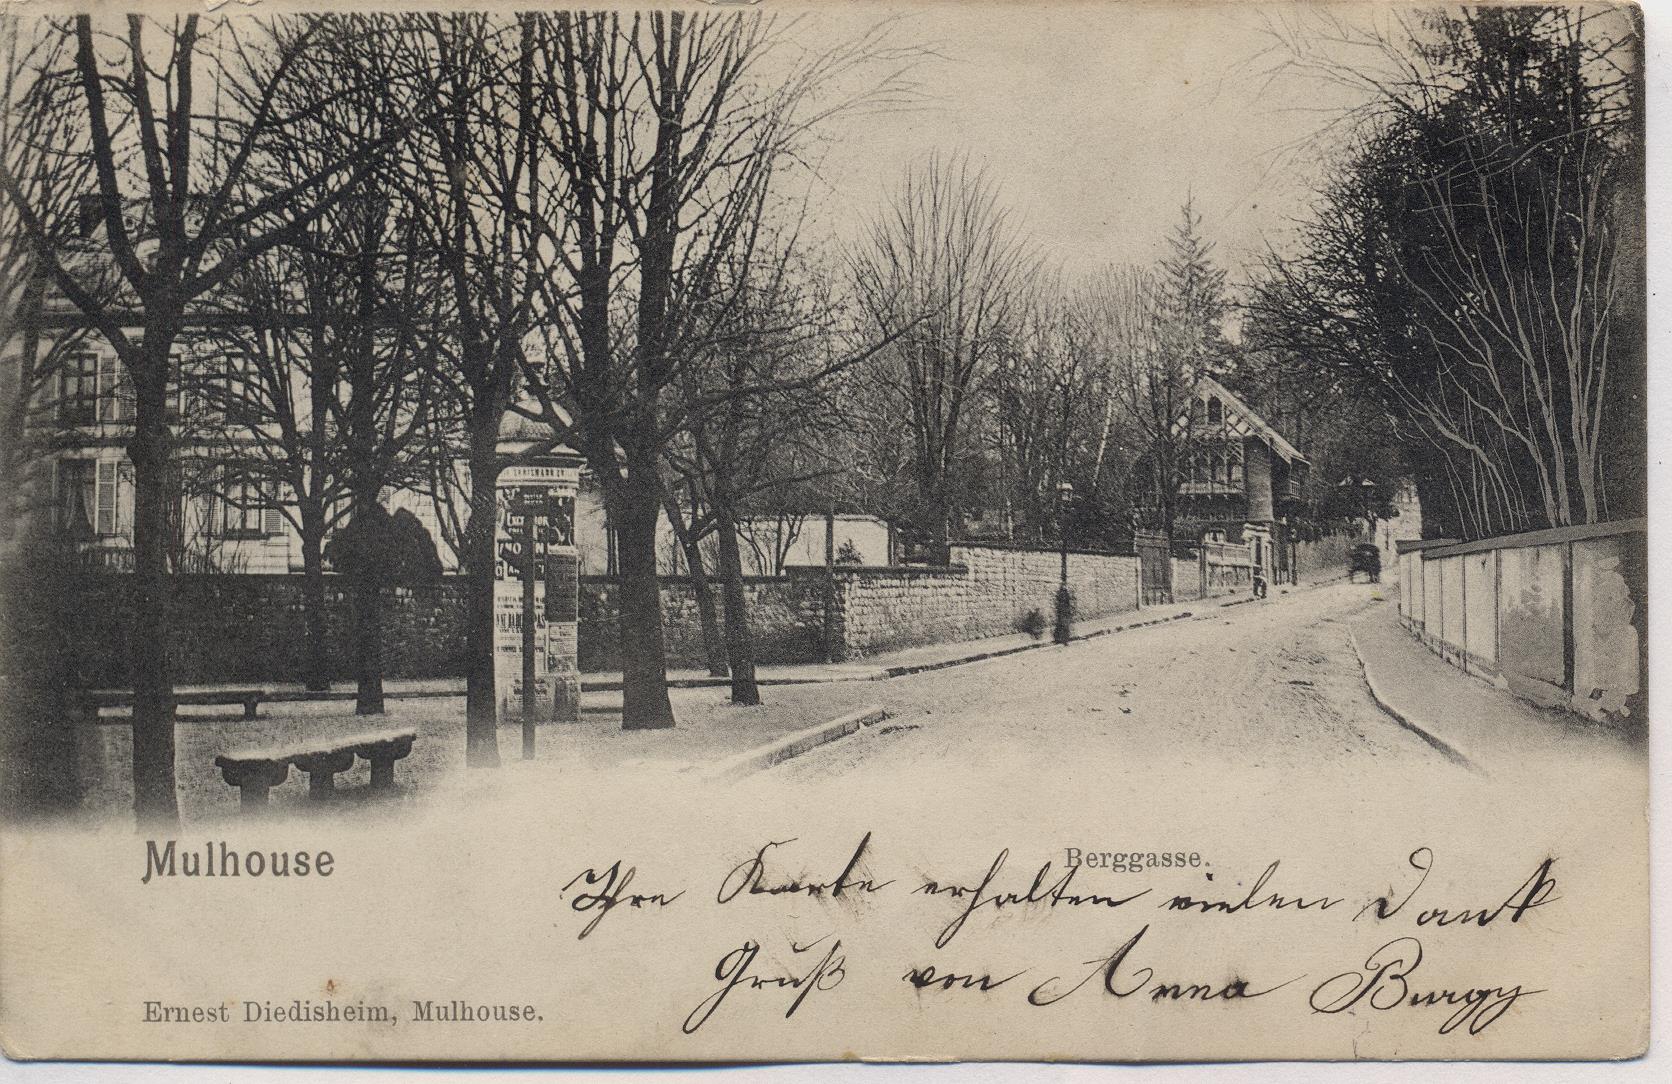 Mulhouse
Berggasse.
Ihre Karte erhalten vielen Dank
Gruß von Anna Burgy
Ernest Diedisheim, Mulhouse.